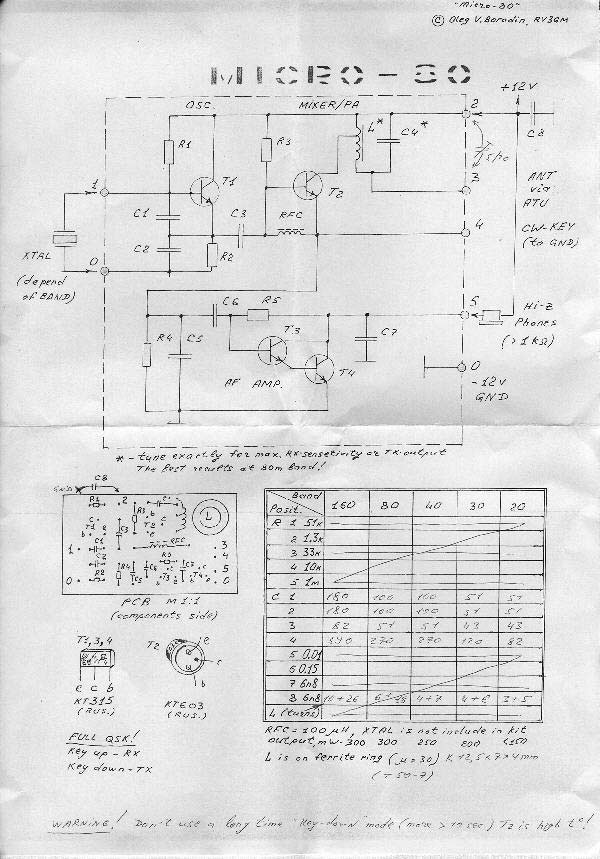 "Micro-80"
© Oleg V. Borodin, RV3GM
MICRO-80
+12V
OSC.
MIXER/PA
2
C8
R1
R3
L*
C4*
5/10
T1
T2
3
ANT
via
ATU
1
C1
C3
RFC
4
CW-KEY
(to GND)
XTAL
(depend
of BAND)
C2
R2
0
C6
R5
5
Hi-Z
Phones
(>1kΩ)
R4
C5
T3
C7
T4
AF AMP.
0
-12V
GND
* - tune exactly for max. RX-sensetivity or TX-output
The best results at 80m band!
GND
C8
R1
2
R3
T2
L
T1
C3
1
C1
C2
RFC
3
4
R5
5
0
R2
R4
C5
C6
T3
T4
C7
0
PCB M 1:1
(components side)
T1,3,4
T2
e
c
b
e c b
KT315
(RUS.)
KT603
(RUS.)
FULL QSK!
Key up - RX
Key down - TX
Band 160 80 40 30 20
Posit.
R 1 51k
2 1.3k
3 33k
4 10k
5 1m
C 1 180 100 100 51 51
2 180 100 100 51 51
3 82 51 51 43 43
4 270 270 120 82
5 0.01
6 0.15
7 6n8
8 6n8 16+26 4+7 4+6 3+5
L (turns)
RFC = 100μH, XTAL is not include in kit
output, mW-300 300 250 200 <150
L is on ferrite ring (μ=30) K 12,5×7×4mm
(T50-7)
WARNING! Don't use a long time "Key-down" mode (more > 10 sec) T2 is high t°!